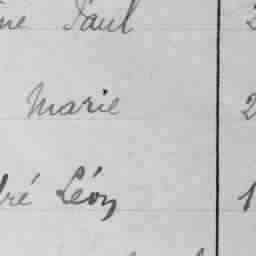 ne Paul 2
Marie 2
dré Léon 1